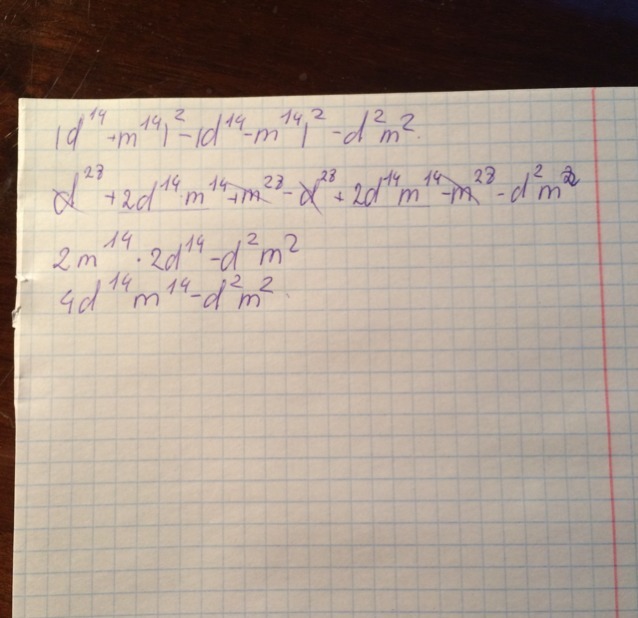 (d¹⁴+m¹⁴)²-(d¹⁴-m¹⁴)²-d²m².
d²⁸+2d¹⁴m¹⁴+m²⁸-d²⁸+2d¹⁴m¹⁴-m²⁸-d²m²
2m¹⁴·2d¹⁴-d²m²
4d¹⁴m¹⁴-d²m².